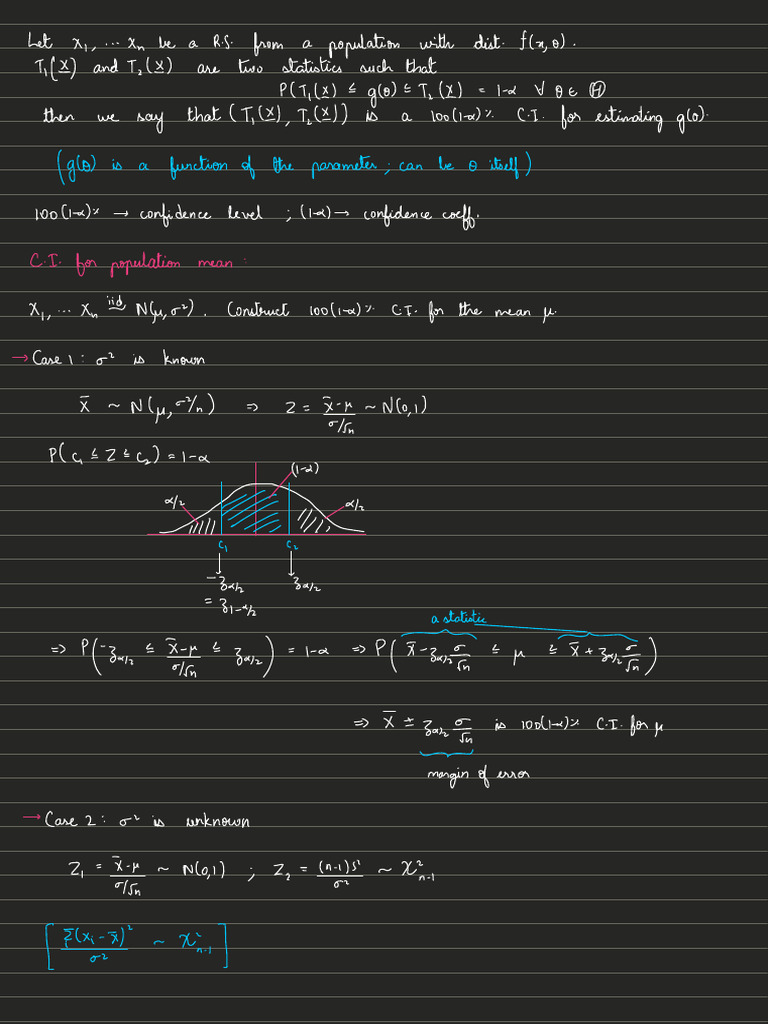 Let X₁, ... Xₙ be a R.S. from a population with dist. f(x,θ).
T₁(X) and T₂(X) are two statistics such that
P(T₁(X) ≤ g(θ) ≤ T₂(X) = 1-α ∀ θ ∈ Ⓗ
then we say that (T₁(X), T₂(X)) is a 100(1-α)% C.I. for estimating g(θ).
(g(θ) is a function of the parameter; can be θ itself)
100(1-α)% → confidence level ; (1-α) → confidence coeff.
C.I. for population mean :
X₁, ... Xₙ iid ~ N(μ,σ²). Construct 100(1-α)% C.I. for the mean μ.
→ Case 1 : σ² is known
X̄ ~ N(μ, σ²/n) ⇒ Z = (X̄-μ)/(σ/√n) ~ N(0,1)
P(c₁ ≤ Z ≤ c₂) = 1-α
(1-α)
α/2 α/2
c₁ c₂
-z_{α/2} z_{α/2}
= z_{1-α/2}
a statistic
⇒ P(-z_{α/2} ≤ (X̄-μ)/(σ/√n) ≤ z_{α/2}) = 1-α ⇒ P(X̄ - z_{α/2} σ/√n ≤ μ ≤ X̄ + z_{α/2} σ/√n)
⇒ X̄ ± z_{α/2} σ/√n is 100(1-α)% C.I. for μ
margin of error
→ Case 2 : σ² is unknown
Z₁ = (X̄-μ)/(σ/√n) ~ N(0,1) ; Z₂ = (n-1)S²/σ² ~ χ²_{n-1}
[Σ(xᵢ-x̄)²/σ² ~ χ²_{n-1}]